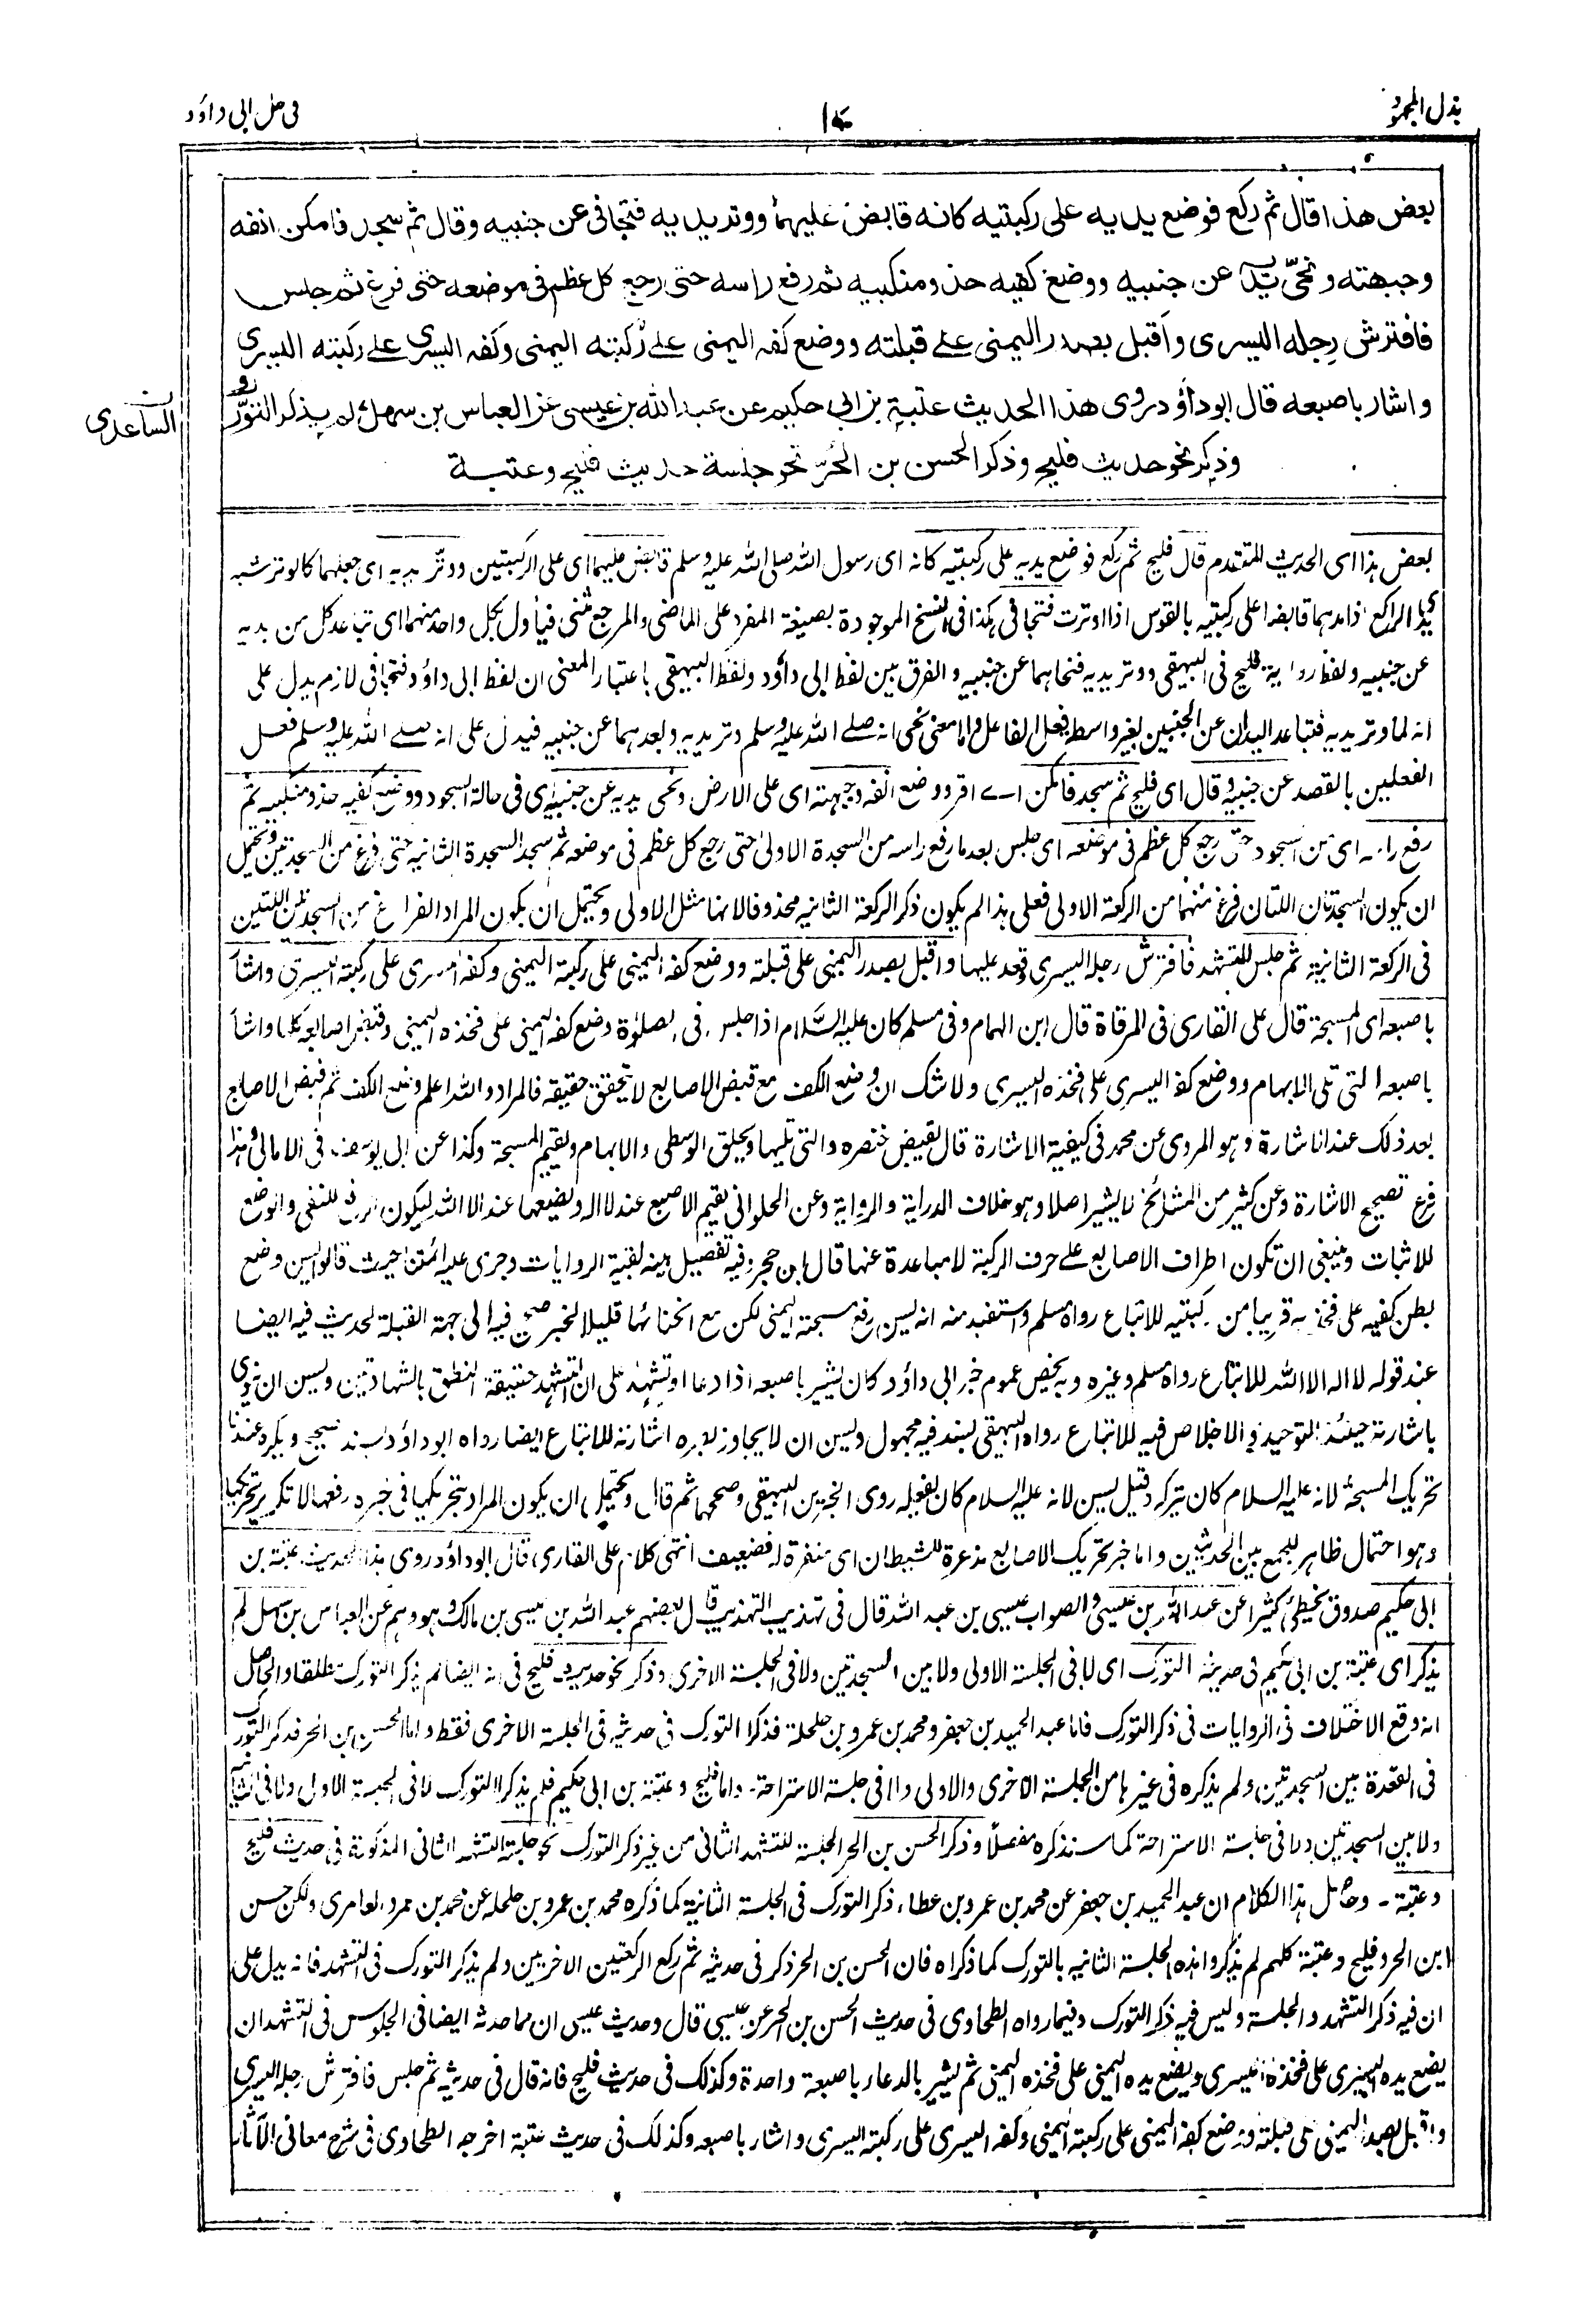 بذل المجهود
١٤
فى حل ابى داؤد
بعض هذا قال ثم ركع فوضع يديه على ركبتيه كانه قابض عليهما ووتر يديه فتجافى عن جنبيه وقال ثم سجد فامكن انفه
وجبهته ونحّى يديه عن جنبيه ووضع كفيه حذو منكبيه ثم رفع راسه حتى رجع كل عظم فى موضعه حتى فرغ ثم جلس
فافترش رجله اليسرى واقبل بصدر اليمنى على قبلته ووضع كفه اليمنى على ركبته اليمنى وكفه اليسرى على ركبته اليسرى
واشار باصبعه قال ابو داؤد روى هذا الحديث عتبة بن ابى حكيم عن عبد الله بن عيسى عن العباس بن سهل لم يذكر التورك
الساعدى
وذكر نحو حديث فليح وذكر الحسن بن الحُرّ نحو جلسة حديث فليح وعتبة
بعض هذا اى الحديث المتقدم قال فليح ثم ركع فوضع يديه على ركبتيه كانه اى رسول الله صلى الله عليه وسلم قابض عليهما اى على الركبتين ووتّر يديه اى جعلهما كالوتر شبه
يد الراكع اذا مدهما قابضا على ركبتيه بالقوس اذا اوترت فتجافى هكذا فى النسخ الموجودة بصيغة المفرد على الماضى والمرجع مثنى فيأول بكل واحد منهما اى تباعد كل من يديه
عن جنبيه ولفظ رواية فليح فى البيهقى ووتر يديه فنحاهما عن جنبيه والفرق بين لفظ ابى داؤد ولفظ البيهقى باعتبار المعنى ان لفظ ابى داؤد فتجافى لازم يدل على
انه لما وتر يديه فتباعد اليدان عن الجنبين بغير واسطة فعل الفاعل واما معنى نحى انه صلى الله عليه وسلم وتر يديه وبعدهما عن جنبيه فيدل على انه صلے الله عليه وسلم فعل
الفعلين بالقصد عن جنبيه وقال اى فليح ثم سجد فامكن اے اقر ووضع انفه وجبهته اى على الارض ونحى يديه عن جنبيه اى فى حالة السجود ووضع كفيه حذو منكبيه ثم
رفع راسه اى من السجود حتى رجع كل عظم فى موضعه اى جلس بعد ما رفع راسه من السجدة الاولى حتى رجع كل عظم فى موضعه ثم سجد السجدة الثانية حتى فرغ من السجدتين ويحتمل
ان يكون السجدتان اللتان فرغ منهما من الركعة الاولى فعلى هذا لم يكون ذكر الركعة الثانية محذوفا لانها مثل الاولى ويحتمل ان يكون المراد الفراغ من السجدتين اللتين
فى الركعة الثانية ثم جلس للتشهد فافترش رجله اليسرى وقعد عليها واقبل بصدر اليمنى على قبلته ووضع كفه اليمنى على ركبته اليمنى وكفه اليسرى على ركبته اليسرى واشار
باصبعه اى المسبحة قال على القارى فى المرقاة قال ابن الهمام وفى مسلم كان عليه السّلام اذا جلس فى الصلوٰة وضع كفه اليمنى على فخذه اليمنى وقبض اصابعه كلها واشار
باصبعه التى تلى الابهام ووضع كفه اليسرى على فخذه اليسرى ولا شك ان وضع الكف مع قبض الاصابع لا يتحقق حقيقة فالمراد والله اعلم وضع الكف ثم قبض الاصابع
بعد ذلك عند الاشارة وهو المروى عن محمد فى كيفية الاشارة قال يقبض خنصره والتى تليها ويحلق الوسطى والابهام ويقيم المسبحة وكذا عن ابى يوسف فى الامالى وهذا
فرع تصحيح الاشارة وعن كثير من المشائخ لا يشير اصلا وهو خلاف الدراية والرواية وعن الحلوانى يقيم الاصبع عند لا اله ويضعها عند الا الله ليكون الرفع للنفى والوضع
للاثبات وينبغى ان تكون اطراف الاصابع على حرف الركبة لا مباعدة عنها قال ابن حجر وفيه تفصيل بينه بقية الروايات وجرى عليه ائمتنا حيث قالوا يسن وضع
بطن كفيه على فخذيه قريبا من ركبتيه للاتباع رواه مسلم واستفيد منه انه يسن رفع مسبحته اليمنى لكن مع انحنائها قليلا لخبر صحيح فيه الى جهة القبلة لحديث فيه ايضا
عند قوله لا اله الا الله للاتباع رواه مسلم وغيره وبه يخص عموم خبر ابى داؤد كان يشير باصبعه اذا دعا او تشهد على ان التشهد حقيقة النطق بالشهادتين ويسن ان ينوى
باشارته حينئذ التوحيد والاخلاص فيه للاتباع رواه البيهقى بسند فيه مجهول ويسن ان لا يجاوز بصره اشارته للاتباع ايضا رواه ابو داؤد بسند صحيح ويكره عندنا
تحريك المسبحة لانه عليه السلام كان يتركه وقيل يسن لانه عليه السلام كان يفعله روى الخبرين البيهقى وصححهما ثم قال ويحتمل ان يكون المراد بتحريكها فى خبره رفعها لا تكرير تحريكها
وهو احتمال ظاهر للجمع بين الحديثين واما خبر تحريك الاصابع مذعرة للشيطان اى منفرة له فضعيف انتهى كلام على القارى، قال ابو داؤد روى هذا الحديث عتبة بن
ابى حكيم صدوق يخطئ كثيرا عن عبد الله بن عيسى والصواب عيسى بن عبد الله قال فى تهذيب التهذيب قال بعضهم عبد الله بن عيسى بن مالك وهو وهم عن العباس بن سهل لم
يذكر اى عتبة بن ابى حكيم فى حديثه التورك اى لا فى الجلسة الاولى ولا بين السجدتين ولا فى الجلسة الاخرى وذكر نحو حديث فليح فى انه ايضا لم يذكر التورك مطلقا والحاصل
انه وقع الاختلاف فى الروايات فى ذكر التورك فاما عبد الحميد بن جعفر ومحمد بن عمرو بن حلحلة فذكرا التورك فى حديثه فى الجلسة الاخرى فقط واما الحسن بن الحر فذكر التورك
فى القعدة بين السجدتين ولم يذكره فى غيرها من الجلسة الاخرى والاولى ولا فى جلسة الاستراحة۔ واما فليح وعتبة بن ابى حكيم فلم يذكرا التورك لا فى الجلسة الاولى ولا فى الثانية
ولا بين السجدتين ولا فى جلسة الاستراحة كما سنذكره مفصلاً وذكر الحسن بن الحر الجلسة للتشهد الثانى من غير ذكر التورك نحو جلسة التشهد الثانى المذكورة فى حديث فليح
وعتبة ۔ وحاصل هذا الكلام ان عبد الحميد بن جعفر عن محمد بن عمرو بن عطاء ذكر التورك فى الجلسة الثانية كما ذكره محمد بن عمرو بن حلحلة عن محمد بن عمرو العامرى ولكن حسن
ابن الحر وفليح وعتبة كلهم لم يذكروا هذه الجلسة الثانية بالتورك كما ذكراه فان الحسن بن الحر ذكر فى حديثه ثم ركع الركعتين الاخريين ولم يذكر التورك فى التشهد فانه يدل على
ان فيه ذكر التشهد والجلسة وليس فيه ذكر التورك وفيما رواه الطحاوى فى حديث الحسن بن الحر عن عيسى قال وحديث عيسى ان مما حدثه ايضا فى الجلوس فى التشهد ان
يضع يده اليسرى على فخذه اليسرى ويضع يده اليمنى على فخذه اليمنى ثم يشير بالدعاء باصبعة واحدة وكذلك فى حديث فليح فانه قال فى حديثه ثم جلس فافترش رجله اليسرى
واقبل بصدر اليمنى على قبلته ووضع كفه اليمنى على ركبته اليمنى وكفه اليسرى على ركبته اليسرى واشار باصبعه وكذلك فى حديث عتبة اخرجه الطحاوى فى شرح معانى الآثار